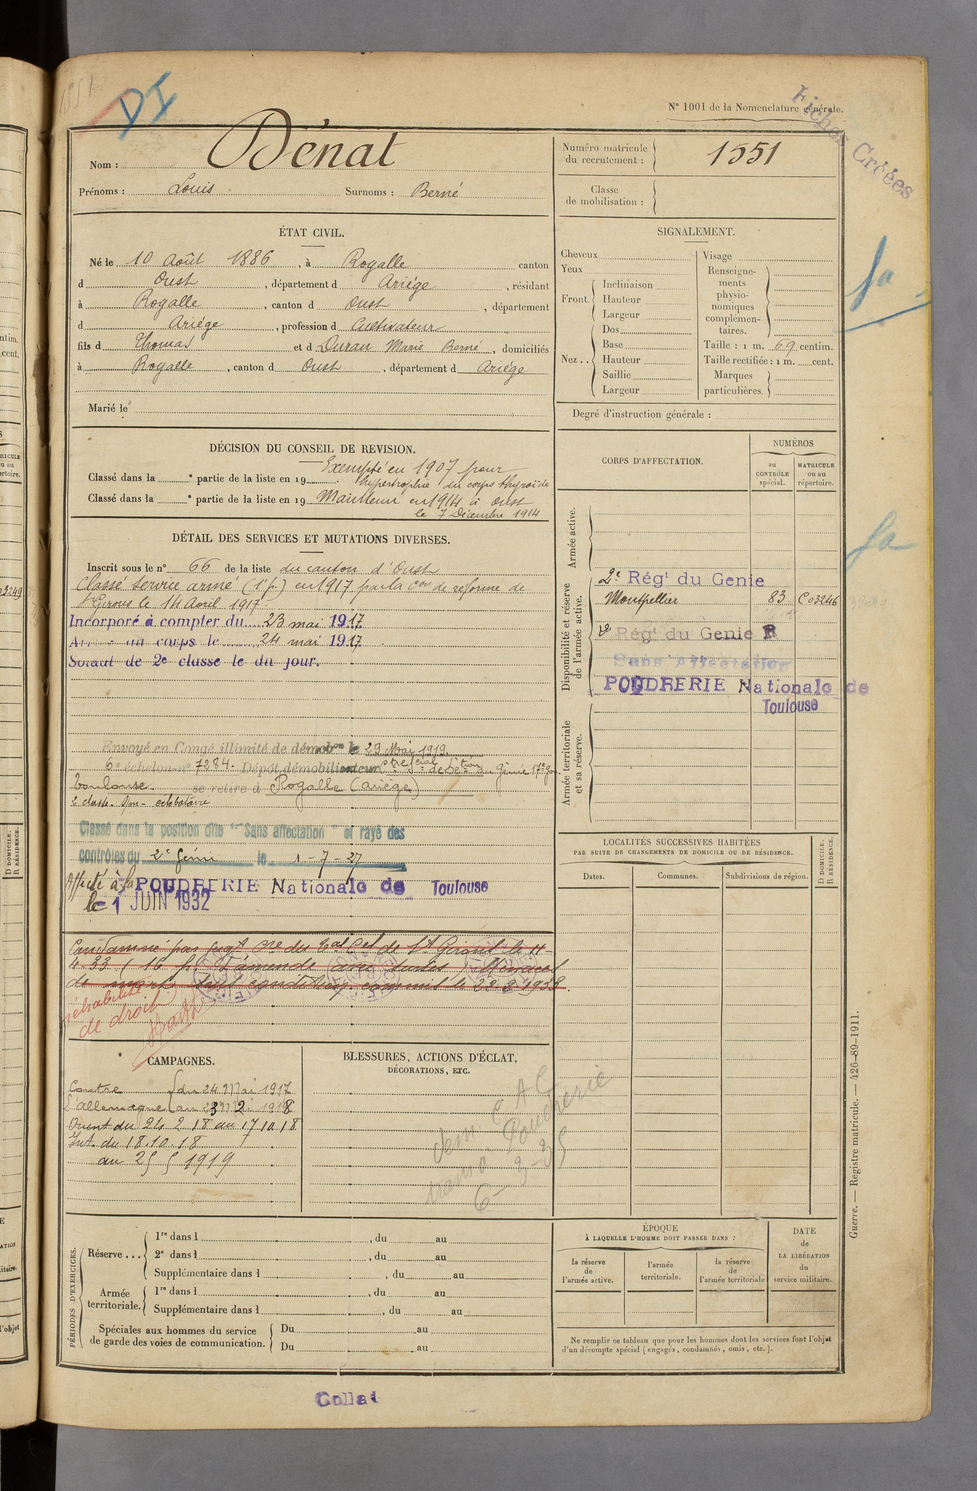 N° 1001 de la Nomenclature générale.
Fiches Créées
Nom : Dénat
Prénoms : Louis Surnoms : Berné
Numéro matricule du recrutement : 1551
Classe de mobilisation :
ÉTAT CIVIL.
Né le 10 Août 1886, à Rogalle canton
d Oust, département d Ariège, résidant
à Rogalle, canton d Oust, département
d Ariége, profession d Cultivateur
fils d Thomas et d Duran Marie Berné, domiciliés
à Rogalle, canton d Oust, département d Ariége
Marié le
SIGNALEMENT.
Cheveux
Yeux
Front. Inclinaison
Hauteur
Largeur
Nez .. Dos
Base
Hauteur
Saillie
Largeur
Visage
Renseignements physionomiques complémentaires.
Taille : 1 m. 69 centim.
Taille rectifiée : 1 m. cent.
Marques particulières.
Degré d'instruction générale :
DÉCISION DU CONSEIL DE REVISION.
Exempté en 1907 pour
Classé dans la e partie de la liste en 19 hypertrophie du corps thyroïde
Classé dans la e partie de la liste en 19 Maintenu en 1914 à Oust
le 7 Décembre 1914
DÉTAIL DES SERVICES ET MUTATIONS DIVERSES.
Inscrit sous le n° 66 de la liste du canton d'Oust
Classé service armé (1e p.) en 1917 par la Con de réforme de
St Girons le 14 Avril 1917.
Incorporé à compter du 23 mai 1917
Arrivé au corps le 24 mai 1917
Soldat de 2e classe le du jour.
Envoyé en Congé illimité de démobon le 29 Mai 1919.
6e échelon n° 7284. Dépôt démobilisateur
Toulouse. se retire à Rogalle (Ariége)
Classé dans la position dite "Sans affectation" et rayé des
contrôles du 2e Génie le 1-7-27
Affecté à la POUDRERIE Nationale de Toulouse
le 1 JUIN 1932
Condamné par
réhabilité
de droit
CORPS D'AFFECTATION.
NUMÉROS
au CONTRÔLE spécial.
MATRICULE ou au répertoire.
Armée active.
Disponibilité et réserve de l'armée active.
2e Rég' du Genie
Montpellier 83 C03246
2e Rég' du Genie R
Sans Affectation
POUDRERIE Nationale de
Toulouse
Armée territoriale et sa réserve.
LOCALITÉS SUCCESSIVES HABITÉES
PAR SUITE DE CHANGEMENTS DE DOMICILE OU DE RÉSIDENCE.
Dates. Communes. Subdivisions de région.
D DOMICILE. R RÉSIDENCE.
CAMPAGNES.
Contre du 24 Mai 1917
L'allemagne au 23 2 1918
Orient du 24 2 18 au 17 10 18
Int. du 18.10.18
au 25 5 1919
BLESSURES, ACTIONS D'ÉCLAT,
DÉCORATIONS, ETC.
6-3-35
PÉRIODES D'EXERCICES.
Réserve... 1re dans l , du au
2e dans l , du au
Supplémentaire dans l , du au
Armée territoriale. 1re dans l , du au
Supplémentaire dans l , du au
Spéciales aux hommes du service de garde des voies de communication. Du au
Du au
ÉPOQUE
À LAQUELLE L'HOMME DOIT PASSER DANS :
la réserve de l'armée active.
l'armée territoriale.
la réserve de l'armée territoriale
DATE
de
LA LIBÉRATION
du
service militaire.
Ne remplir ce tableau que pour les hommes dont les services font l'objet
d'un décompte spécial (engagés, condamnés, omis, etc.).
Guerre. — Registre matricule. — 426-89-1911.